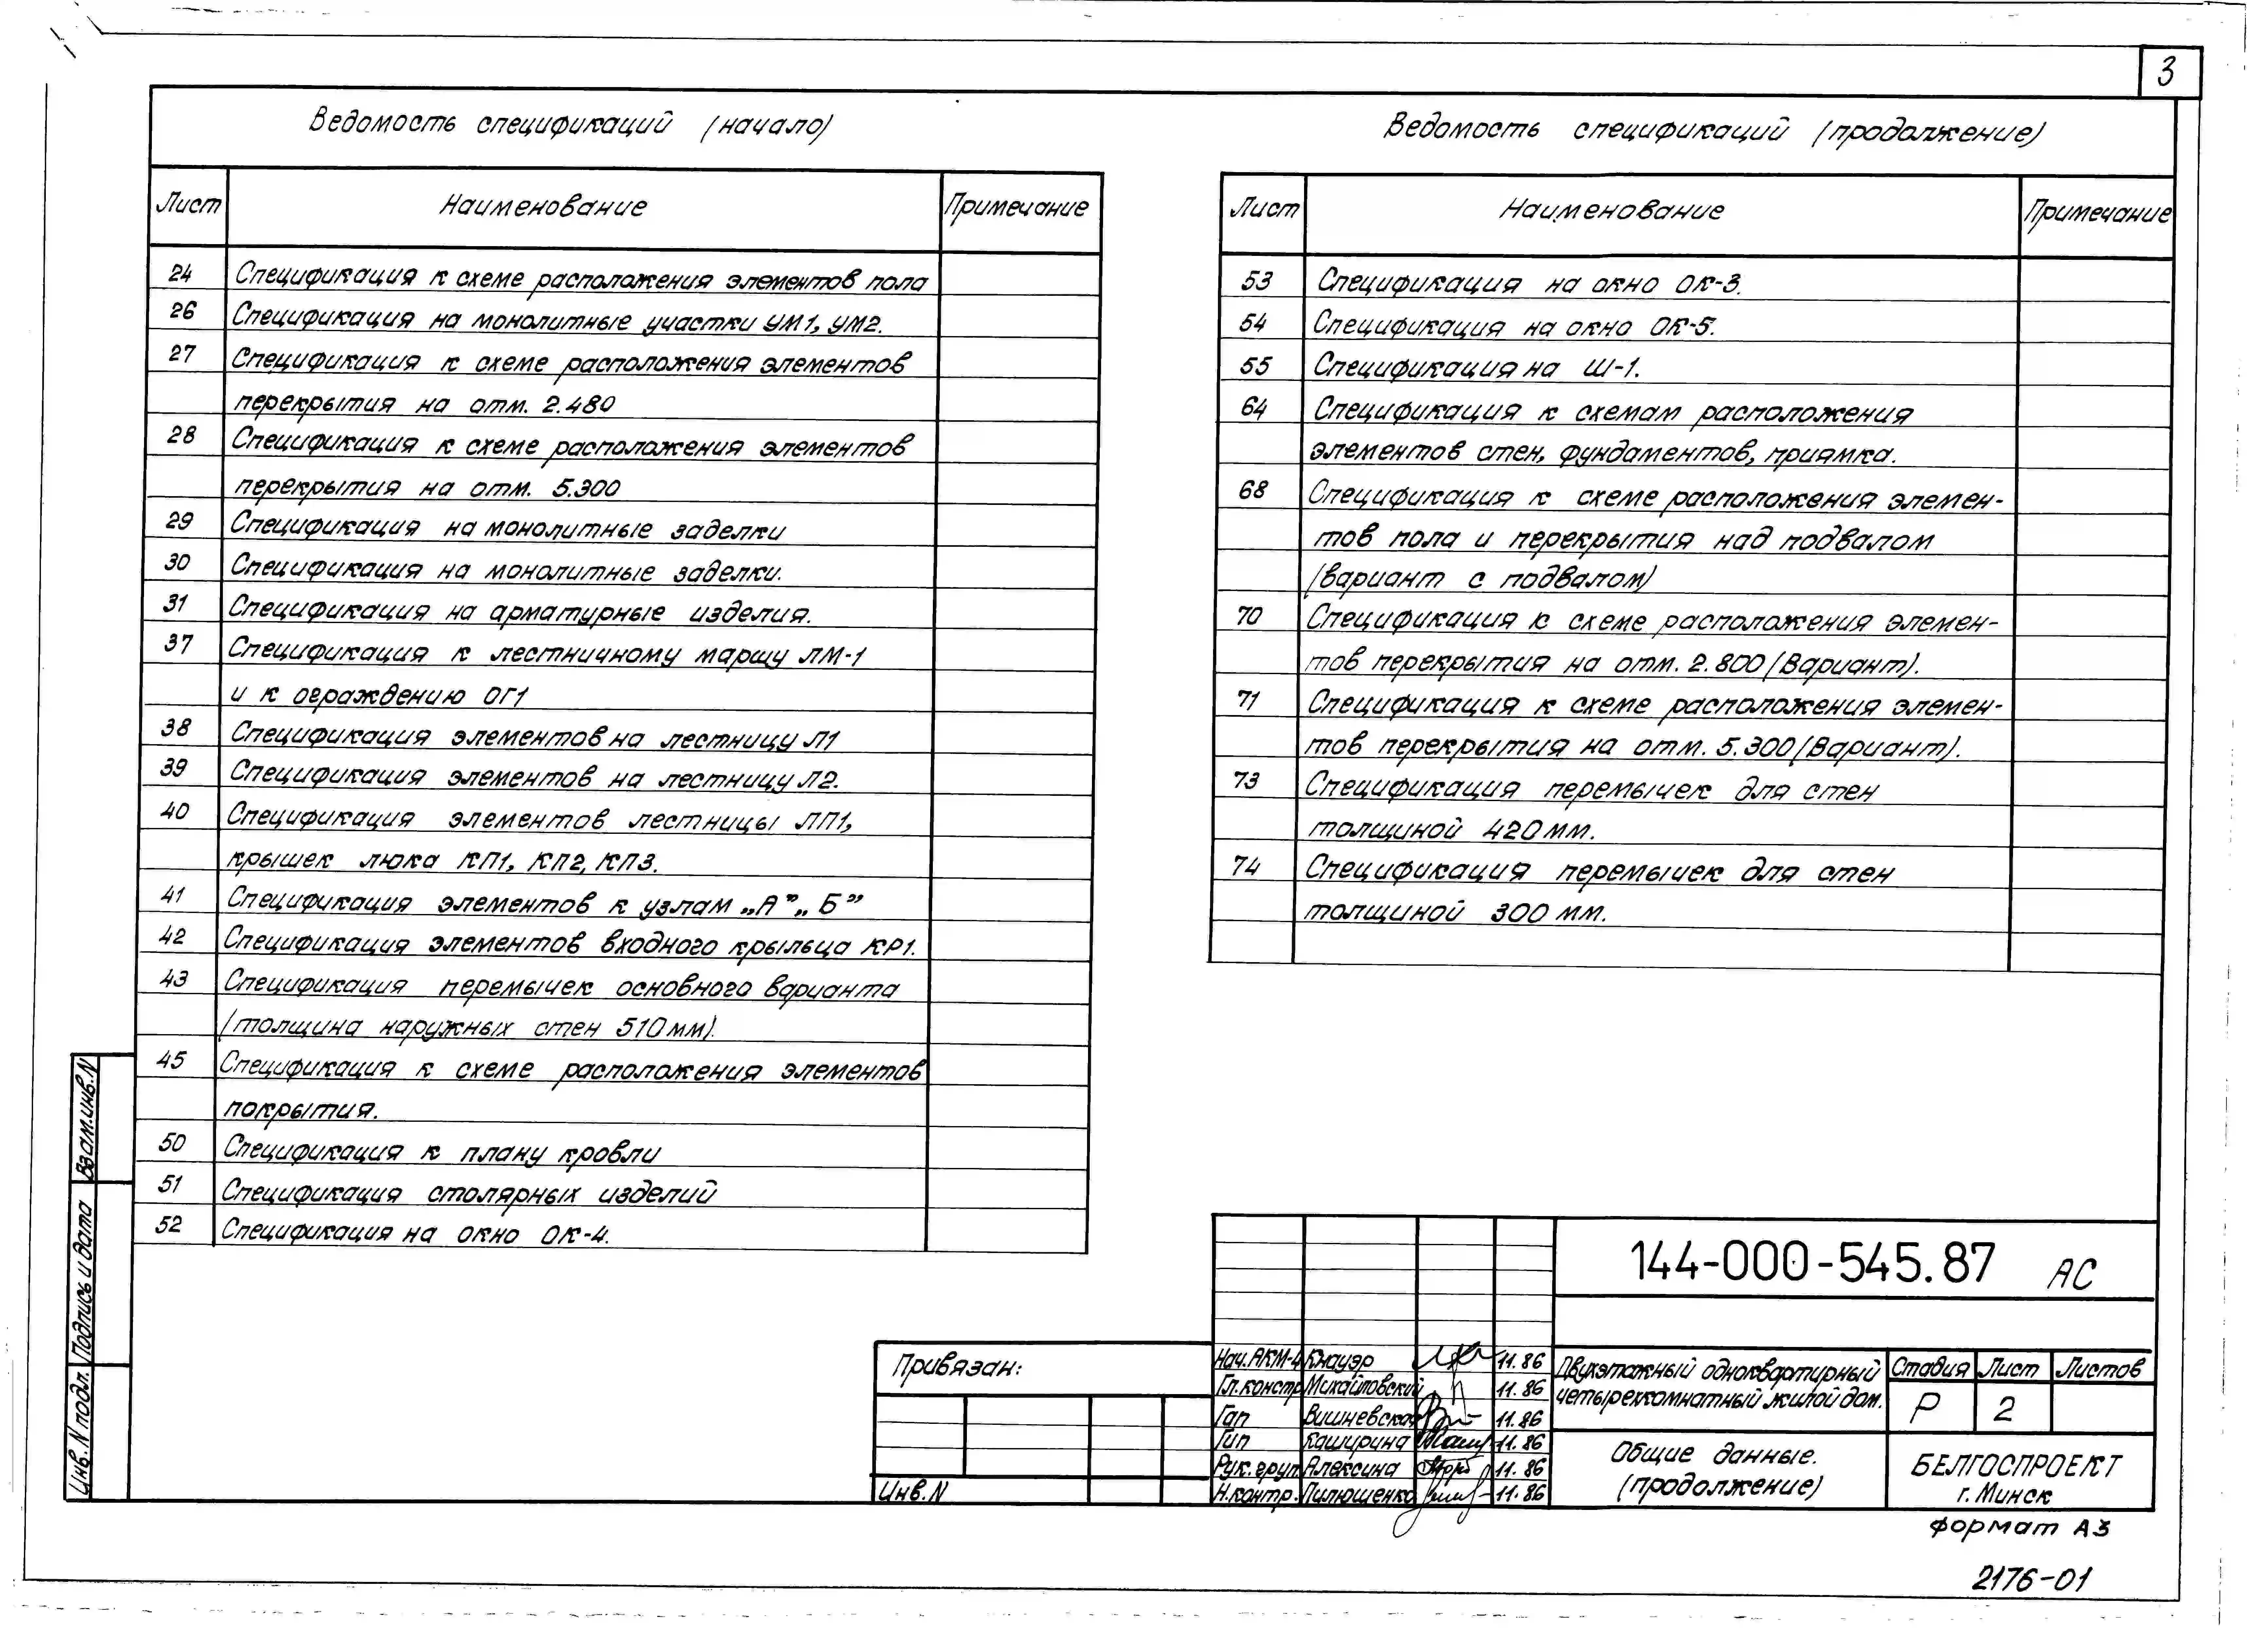 3
Ведомость спецификаций (начало)
Лист Наименование Примечание
24 Спецификация к схеме расположения элементов пола
26 Спецификация на монолитные участки УМ1, УМ2.
27 Спецификация к схеме расположения элементов
перекрытия на отм. 2.480
28 Спецификация к схеме расположения элементов
перекрытия на отм. 5.300
29 Спецификация на монолитные заделки
30 Спецификация на монолитные заделки.
31 Спецификация на арматурные изделия.
37 Спецификация к лестничному маршу ЛМ-1
и к ограждению ОГ1
38 Спецификация элементов на лестницу Л1
39 Спецификация элементов на лестницу Л2.
40 Спецификация элементов лестницы ЛП1,
крышек люка КП1, КП2, КП3.
41 Спецификация элементов к узлам „А”„ Б”
42 Спецификация элементов входного крыльца КР1.
43 Спецификация перемычек основного варианта
(толщина наружных стен 510мм).
45 Спецификация к схеме расположения элементов
покрытия.
50 Спецификация к плану кровли
51 Спецификация столярных изделий
52 Спецификация на окно ОК-4.
Ведомость спецификаций (продолжение)
Лист Наименование Примечание
53 Спецификация на окно ОК-3.
54 Спецификация на окно ОК-5.
55 Спецификация на Ш-1.
64 Спецификация к схемам расположения
элементов стен, фундаментов, приямка.
68 Спецификация к схеме расположения элемен-
тов пола и перекрытия над подвалом
(вариант с подвалом)
70 Спецификация к схеме расположения элемен-
тов перекрытия на отм. 2.800 (Вариант).
71 Спецификация к схеме расположения элемен-
тов перекрытия на отм. 5.300 (Вариант).
73 Спецификация перемычек для стен
толщиной 420мм.
74 Спецификация перемычек для стен
толщиной 300 мм.
Взам.инв.N
Подпись и дата
Инв. N подл.
Привязан:
Инв. N
144-000-545.87 АС
Нач.АКМ-4 Кнауэр 11.86
Гл.констр Михайловский 11.86
Гап Вишневская 11.86
Гип Каширина 11.86
Рук. груп. Алексина 11.86
Н.контр. Пилющенко 11.86
Двухэтажный одноквартирный
четырехкомнатный жилой дом.
Стадия Лист Листов
Р 2
Общие данные.
(продолжение)
БЕЛГОСПРОЕКТ
г. Минск
формат А3
2176-01